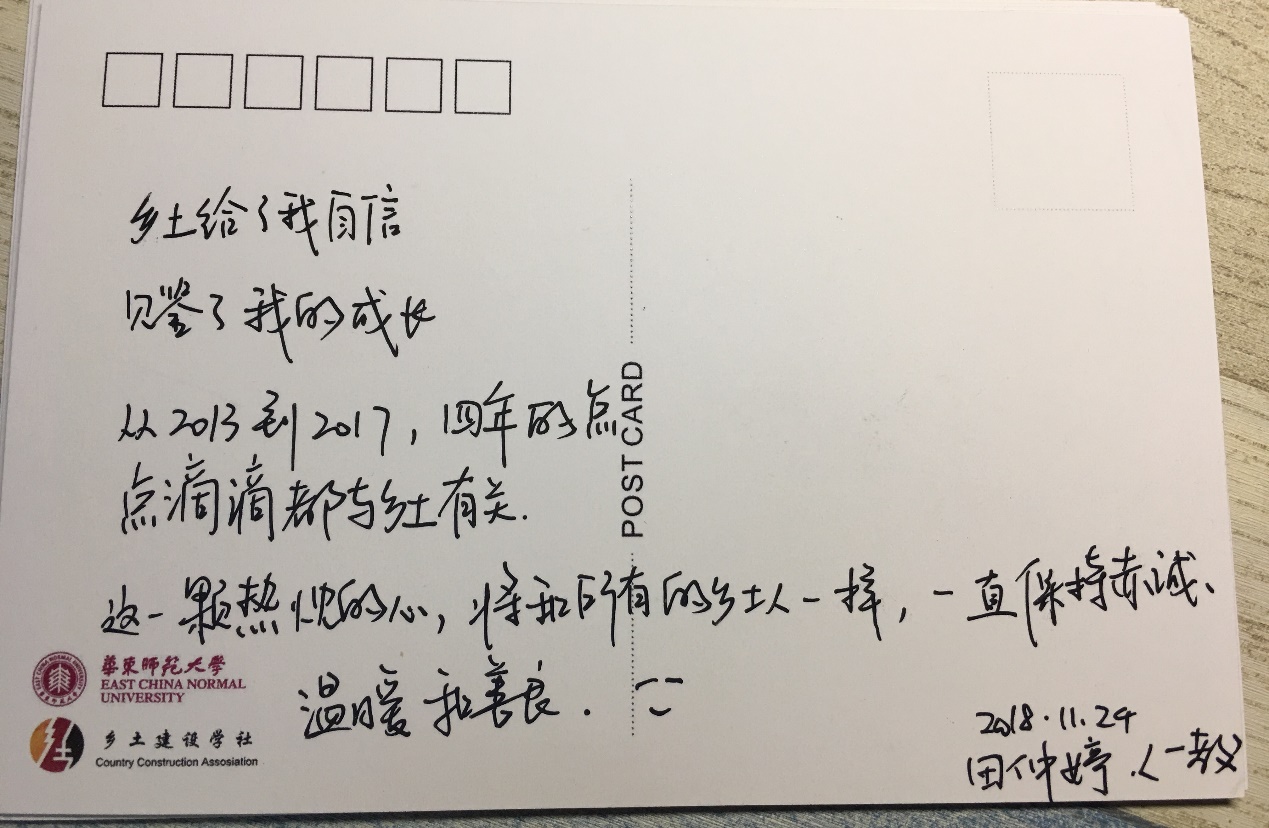 乡土给了我自信
见鉴了我的成长
从2013到2017，四年的点
点滴滴都与乡土有关.
这一颗热忱的心，将和所有的乡土人一样，一直保持赤诚、
温暖和善良.
POST CARD
華東師範大學
EAST CHINA NORMAL
UNIVERSITY
乡土建设学社
Country Construction Assosiation
2018.11.24
田仲婷.